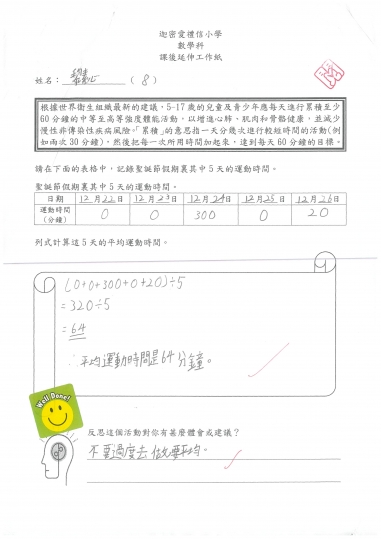 迦密愛禮信小學
數學科
課後延伸工作紙
姓名： (8)
根據世界衛生組織最新的建議，5-17歲的兒童及青少年應每天進行累積至少
60分鐘的中等至高等強度體能活動，以增進心肺、肌肉和骨骼健康，並減少
慢性非傳染性疾病風險。「累積」的意思指一天分幾次進行較短時間的活動(例
如兩次30分鐘)，然後把每一次所用時間加起來，達到每天60分鐘的目標。
請在下面的表格中，記錄聖誕節假期裏其中5天的運動時間。
聖誕節假期裏其中5天的運動時間。
日期 12月22日 12月23日 12月24日 12月25日 12月26日
運動時間 0 0 300 0 20
(分鐘)
列式計算這5天的平均運動時間。
(0+0+300+0+20)÷5
=320÷5
=64
∴平均運動時間是64分鐘。
Well Done!
反思這個活動對你有甚麼體會或建議？
不要過度去做要平均。